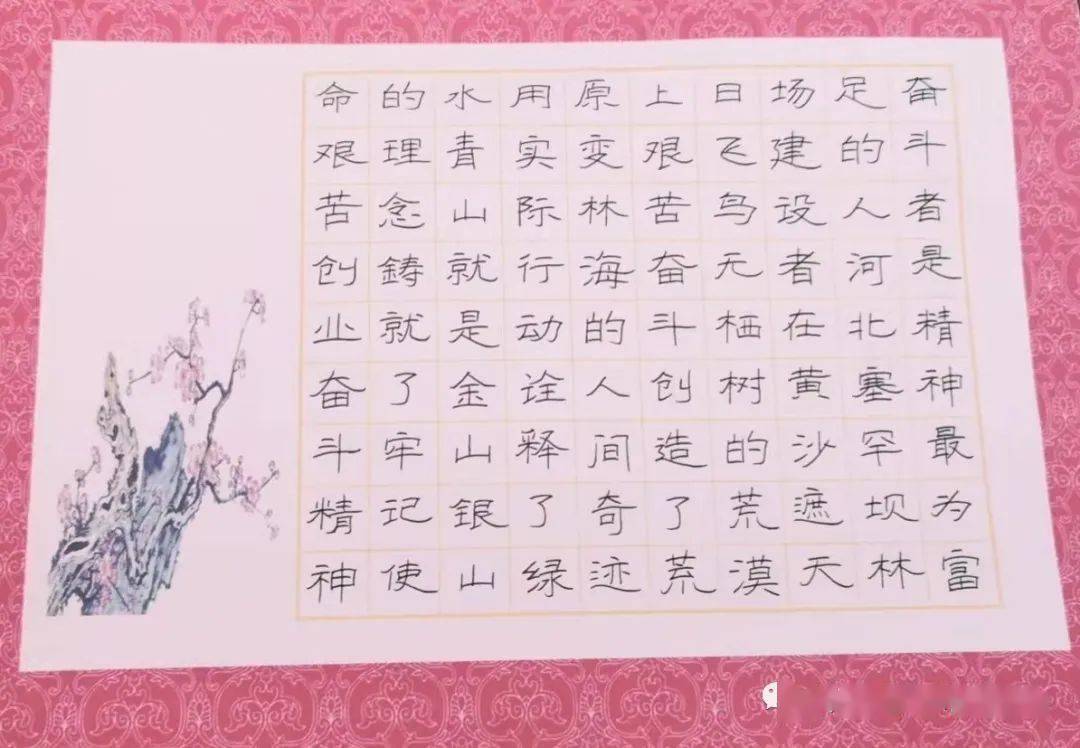 奋斗者是精神最为富
足的人河北塞罕坝林
场建设者在黄沙遮天
日飞鸟无栖树的荒漠
上艰苦奋斗创造了荒
原变林海的人间奇迹
用实际行动诠释了绿
水青山就是金山银山
的理念鑄就了牢记使
命艰苦创业奋斗精神